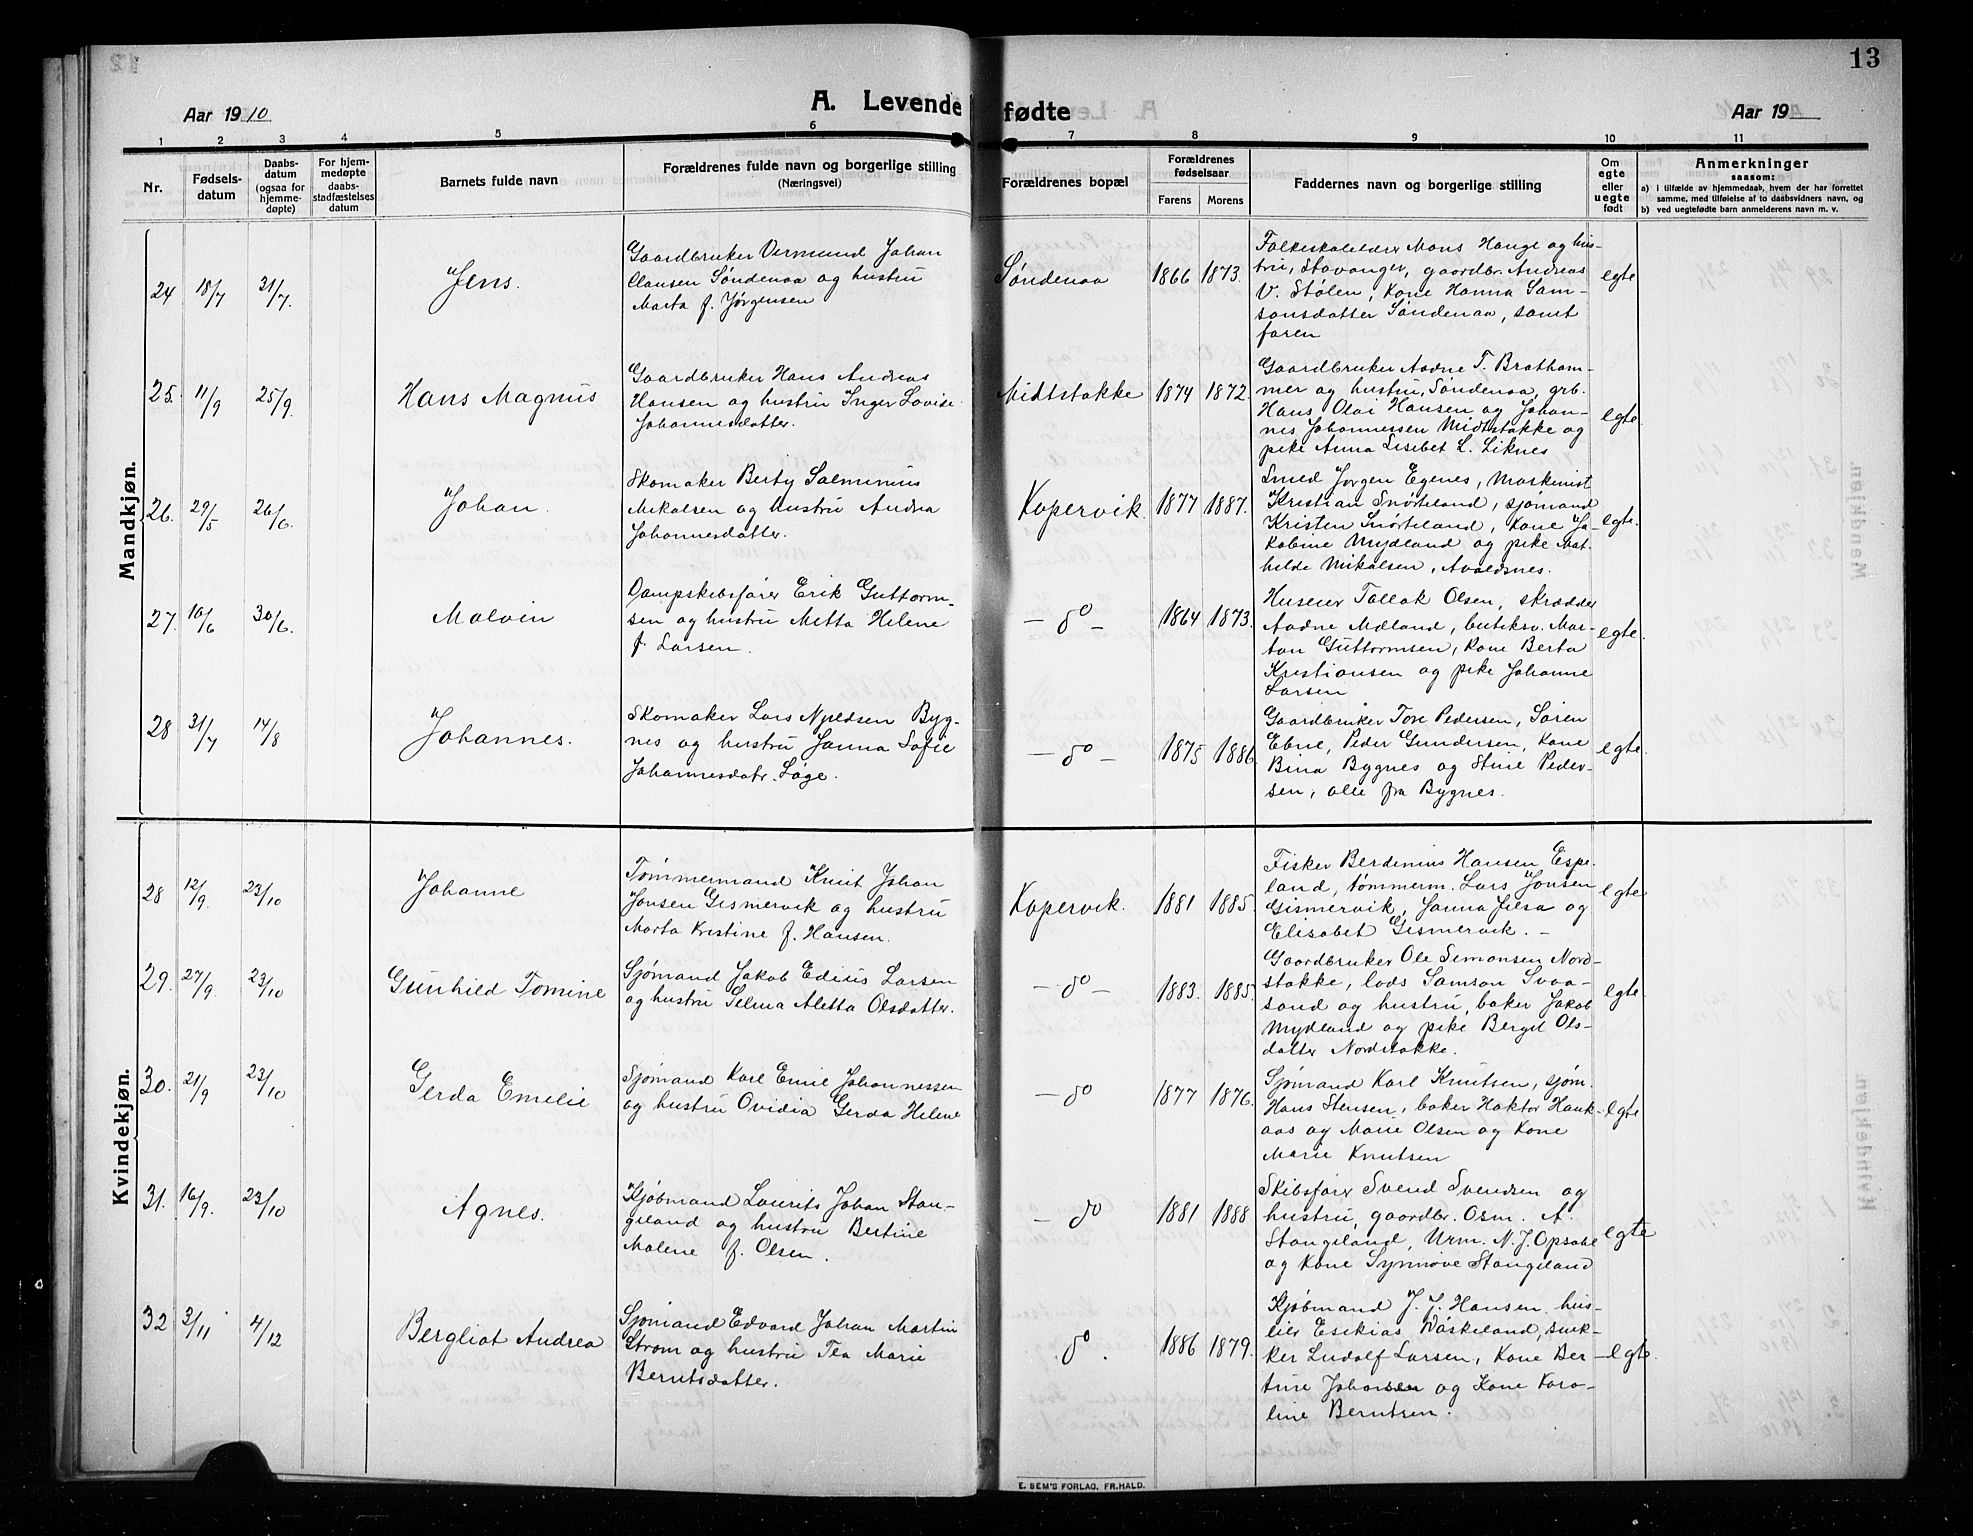 13
Aar 1910
A. Levende fødte
Aar 19
1 2 3 4 5 6 7 8 9 10 11
Nr.
Fødsels-
datum
Daabs-
datum
(ogsaa for
hjemme-
døpte)
For hjem-
medøpte
daabs-
stadfæstelses
datum
Barnets fulde navn
Forældrenes fulde navn og borgerlige stilling
(Næringsvei)
Forældrenes bopæl
Forældrenes
fødselsaar
Farens Morens
Faddernes navn og borgerlige stilling
Om
egte
eller
uegte
født
Anmerkninger
saasom:
a) i tilfælde av hjemmedaab, hvem der har forrettet
samme, med tilføielse af to daabsvidners navn, og
b) ved uegtefødte barn anmelderens navn m. v.
Mandkjøn.
24 18/7 31/7. Jens.
Gaardbruker Vermund Johan
Clausen Søndenaa og hustru
Marta f. Jørgensen
Søndenaa 1866 1873.
Folkeskolelærer Mons Hauge og hus-
tru, Stavanger, gaardbr. Andreas
V. Stølen, Kone Hanna Sam-
sonsdatter Søndenaa, samt
faren
egte
25. 11/9 25/9. Hans Magnus
Gaardbruker Hans Andreas
Hansen og hustru Inger Lovise
Johannesdatter.
Midtstokke 1874 1872.
Gaardbruker Aadne T. Bratham-
mer og hustru, Søndenaa, grb.
Hans Olai Hansen og Johan-
nes Johannessen Midtstokke og
pike Anna Lisebet L. Liknes
egte
26. 29/5 26/6. Johan.
Skomaker Berty Salminius
Mikalsen og hustru Andrea
Johannesdatter.
Kopervik 1877 1887.
Smed Jørgen Egenes, Maskinist
Kristian Snørteland, sjømand
Kristen Snørteland, Kone Ja-
kobine Mydland og pike Mat-
hilde Mikalsen, Avaldsnes.
egte.
27. 10/6 30/6. Malvin
Dampskibsfører Erik Guttorm-
sen og hustru Metta Helene
f. Larsen.
— do — 1864 1873.
Huseier Tallak Olsen, skrædder
Aadne Mæland, butiksv. Mar-
tan Guttormsen, Kone Berta
Kristiansen og pike Johanne
Larsen
egte.
28 31/7 14/8 Johannes.
Skomaker Lars Njeldsen Byg-
nes og hustru Janna Sofie
Johannesdatr. Løge.
— do — 1875 1886
Gaardbruker Tore Pedersen, Søren
Ebne, Peder Gundersen, Kone
Bina Bygnes og Stine Peder-
sen, alle fra Bygnes.
egte.
Kvindekjøn.
28 12/9. 23/10 Johanne
Tømmermand Knut Johan
Jonsen Gismervik og hustru
Marta Kristine f. Hansen.
Kopervik. 1881 1885.
Fisker Berdinius Hansen Espe-
land, tømmerm. Lars Jonsen
Gismervik, Janna Jilsa og
Elisabet Gismervik. —
egte
29. 27/9. 23/10 Gunhild Tomine
Sjømand Jakob Edius Larsen
og hustru Selma Aletta Olsdatter.
— do — 1883. 1885.
Gaardbruker Ole Simonsen Nord-
stokke, lods Samson Svaa-
sand og hustru, baker Jakob
Mydland og pike Bergit Ols-
datter Nordstokke.
egte.
30. 21/9 23/10 Gerda Emelie
Sjømand Karl Emil Johannessen
og hustru Ovidia Gerda Helene
— do 1877 1876.
Sjømand Karl Knutsen, sjøm.
Hans Stensen, baker Haktor Hauk-
aas og Marie Olsen og Kone
Marie Knutsen
egte
31. 16/9. 23/10 Agnes.
Kjøbmand Laurits Johan Stan-
geland og hustru Bertine
Malene f. Olsen.
— do 1881 1888
Skibsfører Svend Svendsen og
hustru, gaardbr. Osm. A.
Stangeland, Urm. N. J. Opsahl
og Kone Synnøve Stangeland
egte
32 3/11 4/12 Bergliot Andrea
Sjømand Edvard Johan Martin
Strøm og hustru Tea Marie
Berntsdatter.
do. 1886 1879.
Kjøbmand J. J. Hansen, hus-
eier Esekias Vaaskeland, snek-
ker Ludolf Larsen, Kone Ber-
tine Johansen og Kone Karo-
line Berntsen.
egte.
E. SEM'S FORLAG, FR.HALD.